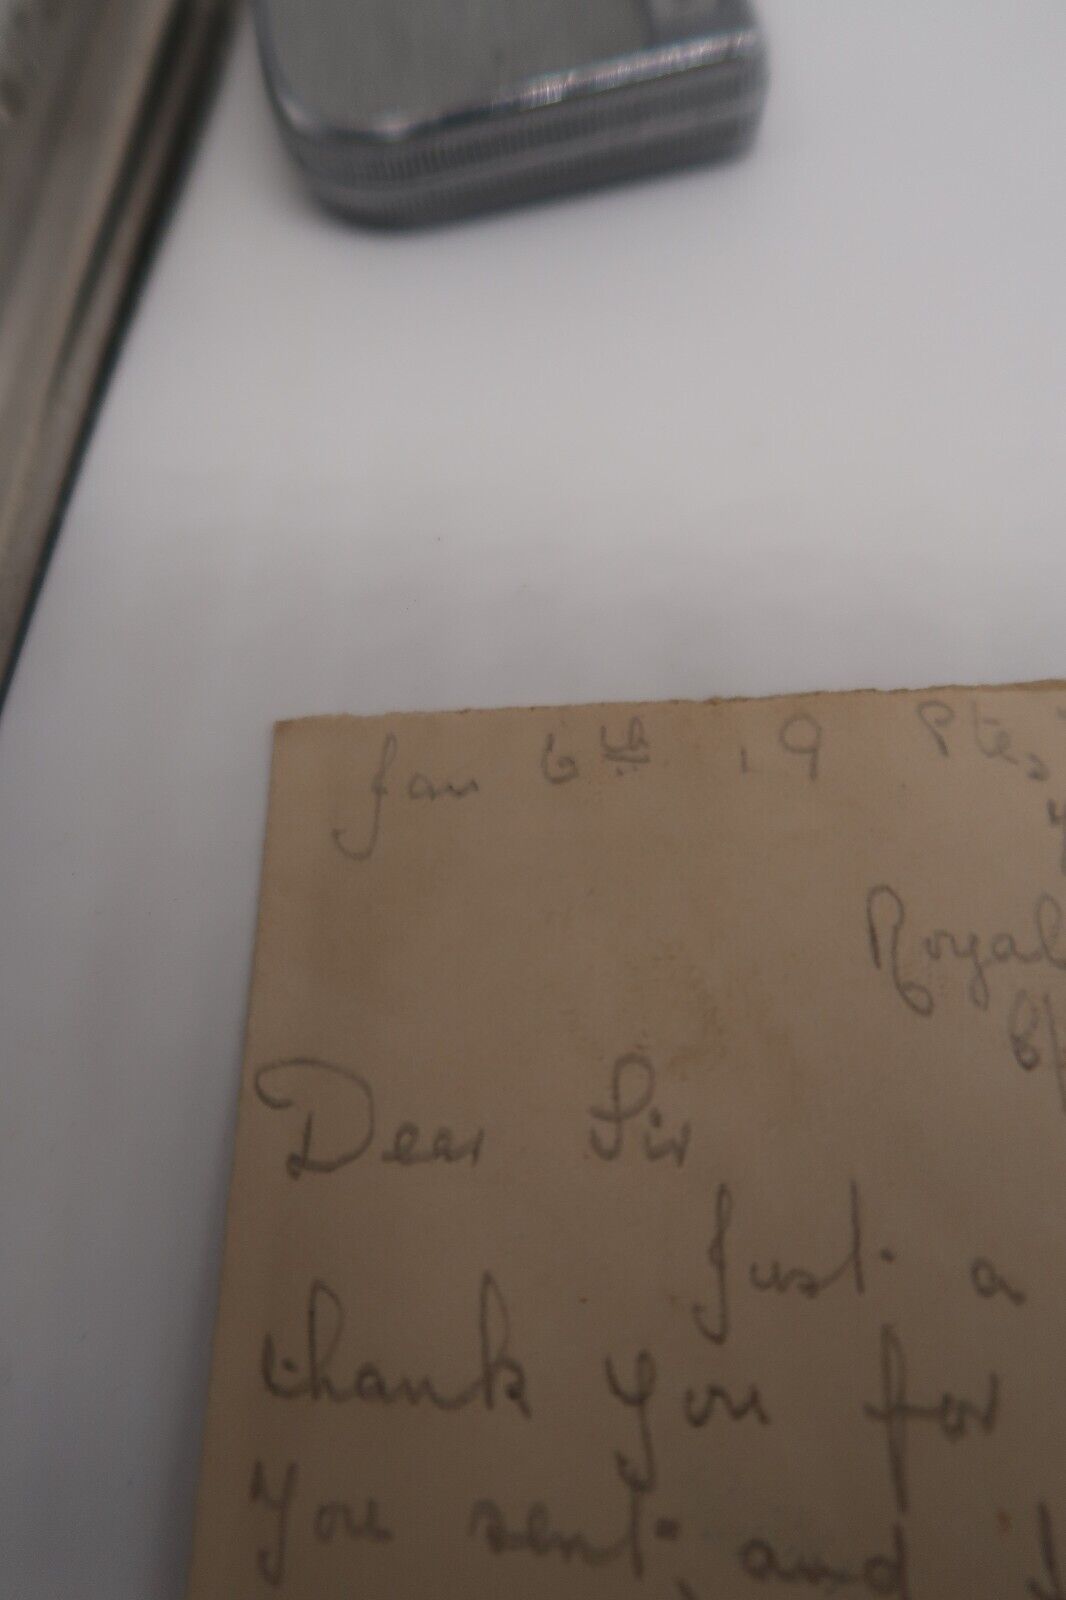 Jan 6th . 19 Pte,
Royal
B/
Dear Sir
Just a
thank you for
you sent, and